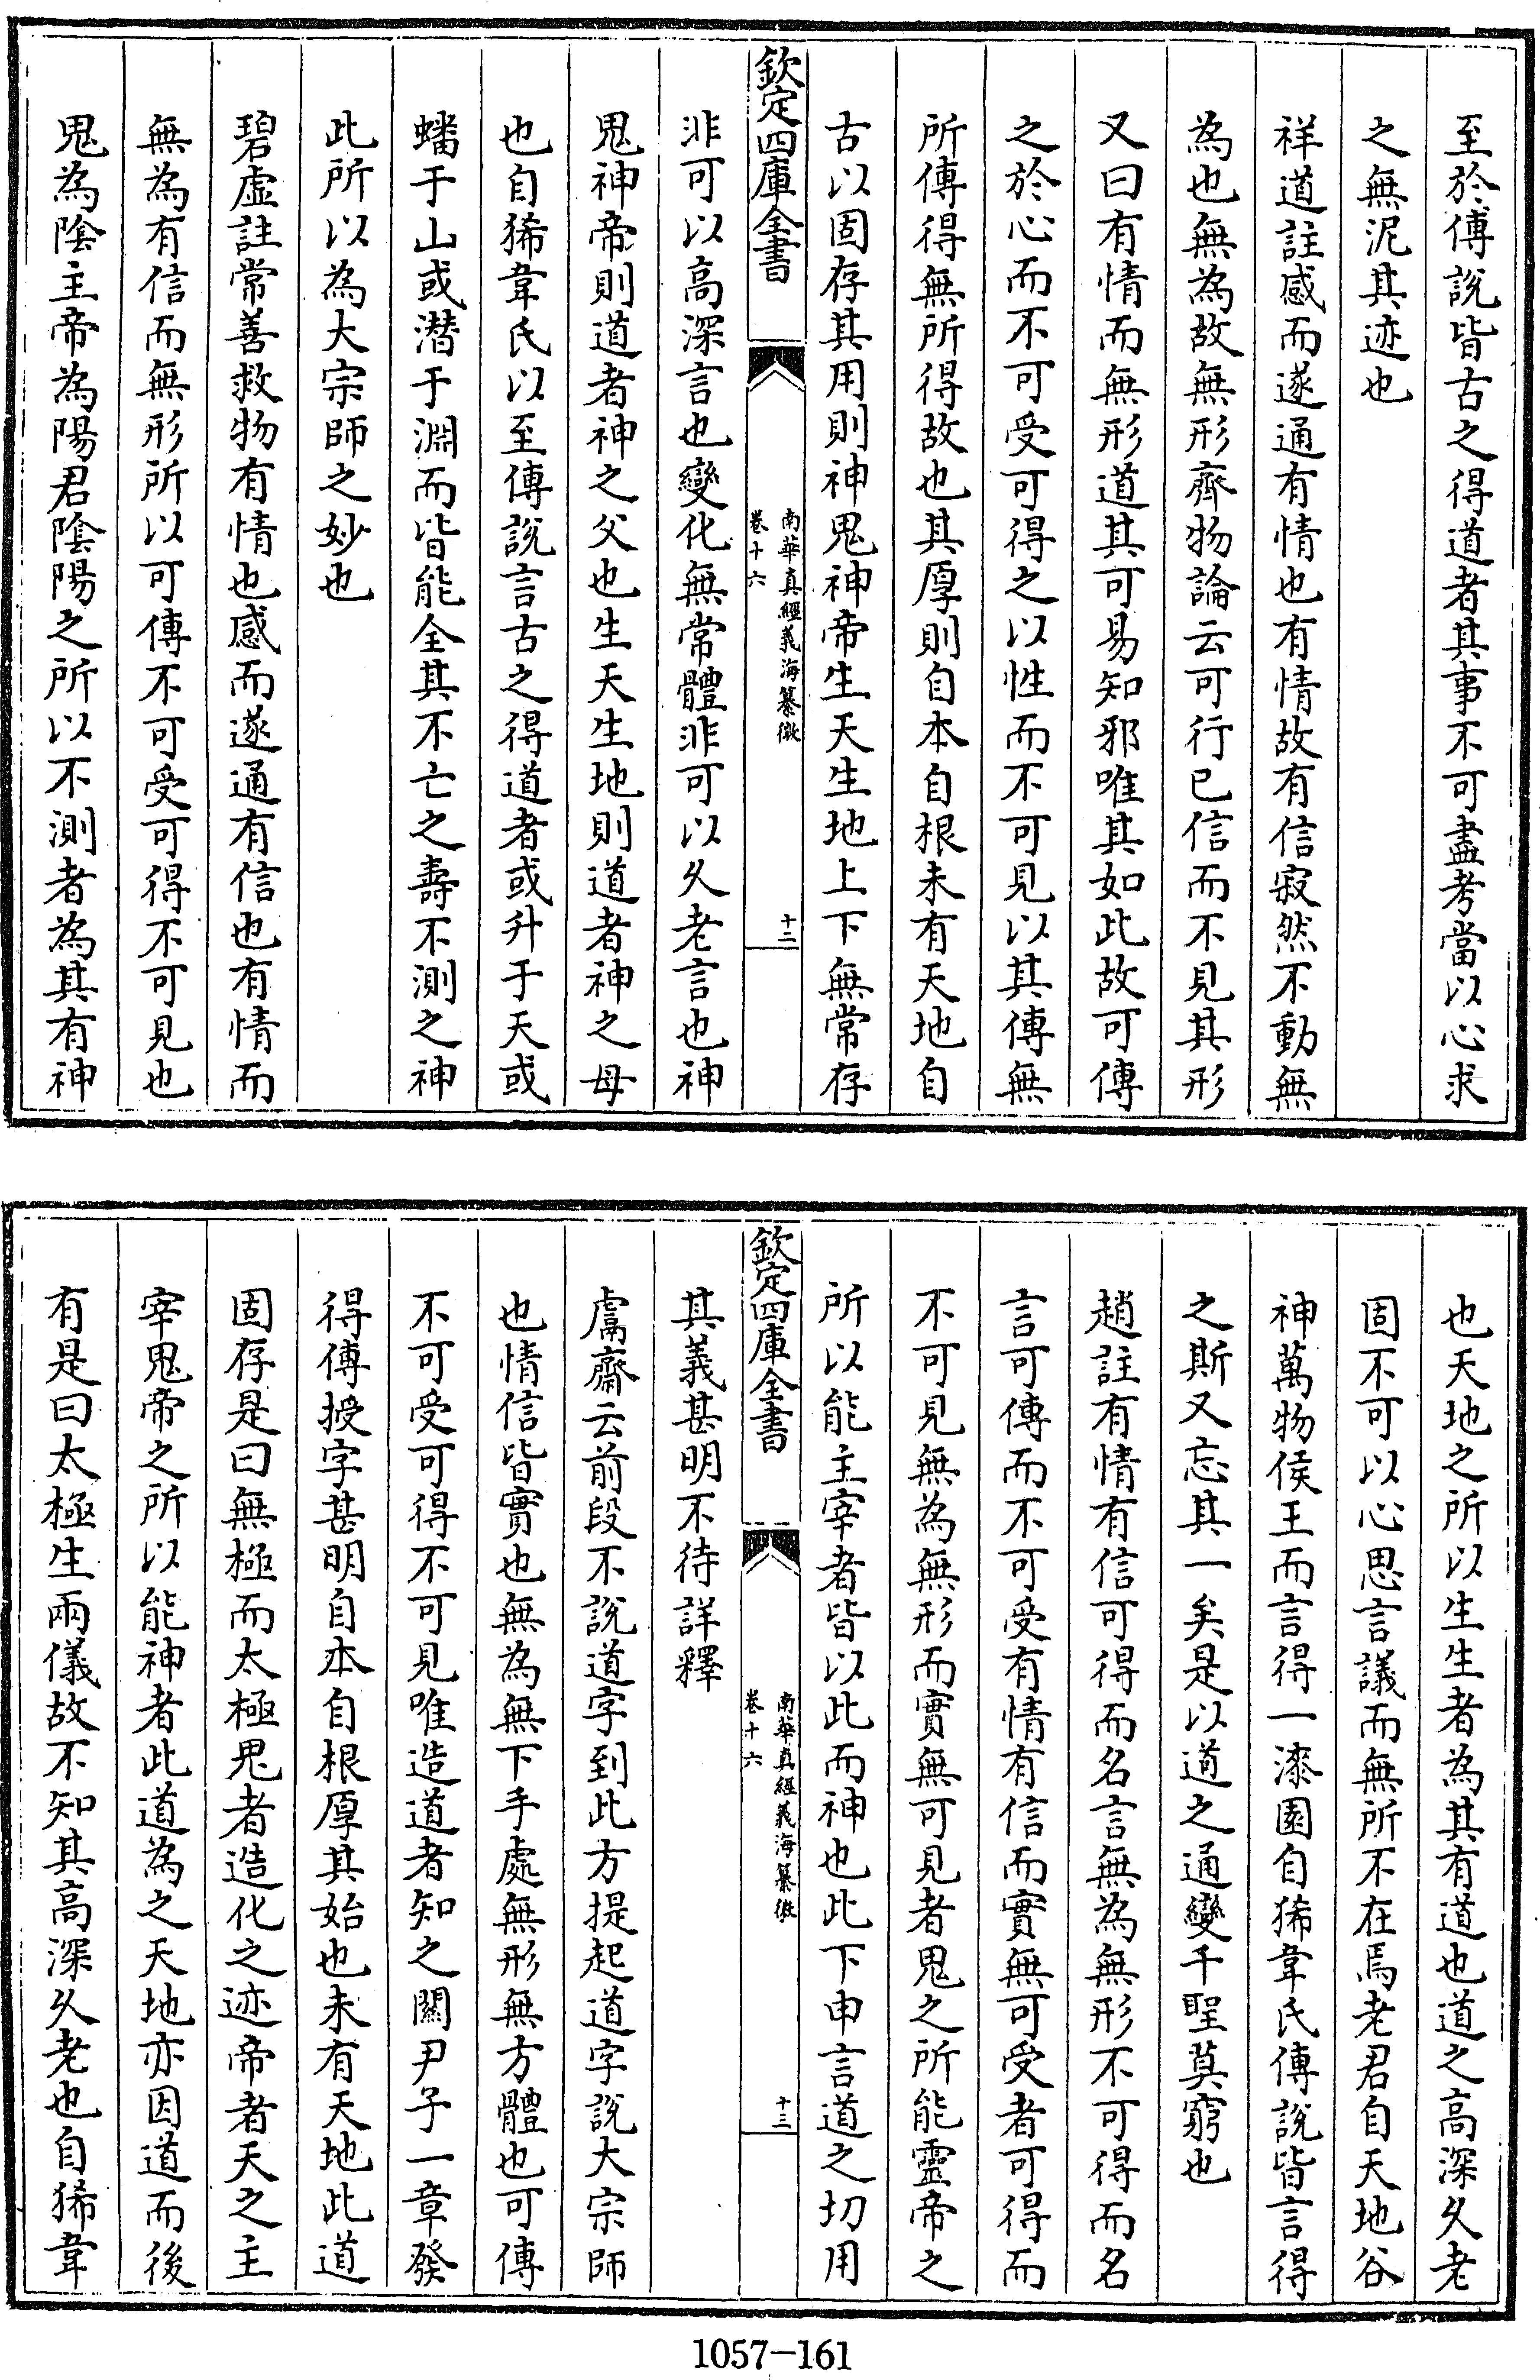 至於傅說皆古之得道者其事不可盡考當以心求
之無泥其迹也
祥道註感而遂通有情也有情故有信寂然不動無
為也無為故無形齊物論云可行已信而不見其形
又曰有情而無形道其可易知邪唯其如此故可傳
之於心而不可受可得之以性而不可見以其傳無
所傳得無所得故也其厚則自本自根未有天地自
古以固存其用則神鬼神帝生天生地上下無常存
欽定四庫全書
南華真經義海纂微
卷十六
十二
非可以高深言也變化無常體非可以久老言也神
鬼神帝則道者神之父也生天生地則道者神之母
也自狶韋氏以至傅說言古之得道者或升于天或
蟠于山或潛于淵而皆能全其不亡之壽不測之神
此所以為大宗師之妙也
碧虛註常善救物有情也感而遂通有信也有情而
無為有信而無形所以可傳不可受可得不可見也
鬼為陰主帝為陽君陰陽之所以不測者為其有神
也天地之所以生生者為其有道也道之高深久老
固不可以心思言議而無所不在焉老君自天地谷
神萬物侯王而言得一漆園自狶韋氏傅說皆言得
之斯又忘其一矣是以道之通變千聖莫窮也
趙註有情有信可得而名言無為無形不可得而名
言可傳而不可受有情有信而實無可受者可得而
不可見無為無形而實無可見者鬼之所能靈帝之
所以能主宰者皆以此而神也此下申言道之切用
欽定四庫全書
南華真經義海纂微
卷十六
十三
其義甚明不待詳釋
鬳齋云前段不說道字到此方提起道字說大宗師
也情信皆實也無為無下手處無形無方體也可傳
不可受可得不可見唯造道者知之關尹子一章發
得傳授字甚明自本自根厚其始也未有天地此道
固存是曰無極而太極鬼者造化之迹帝者天之主
宰鬼帝之所以能神者此道為之天地亦因道而後
有是曰太極生兩儀故不知其高深久老也自狶韋
1057-161